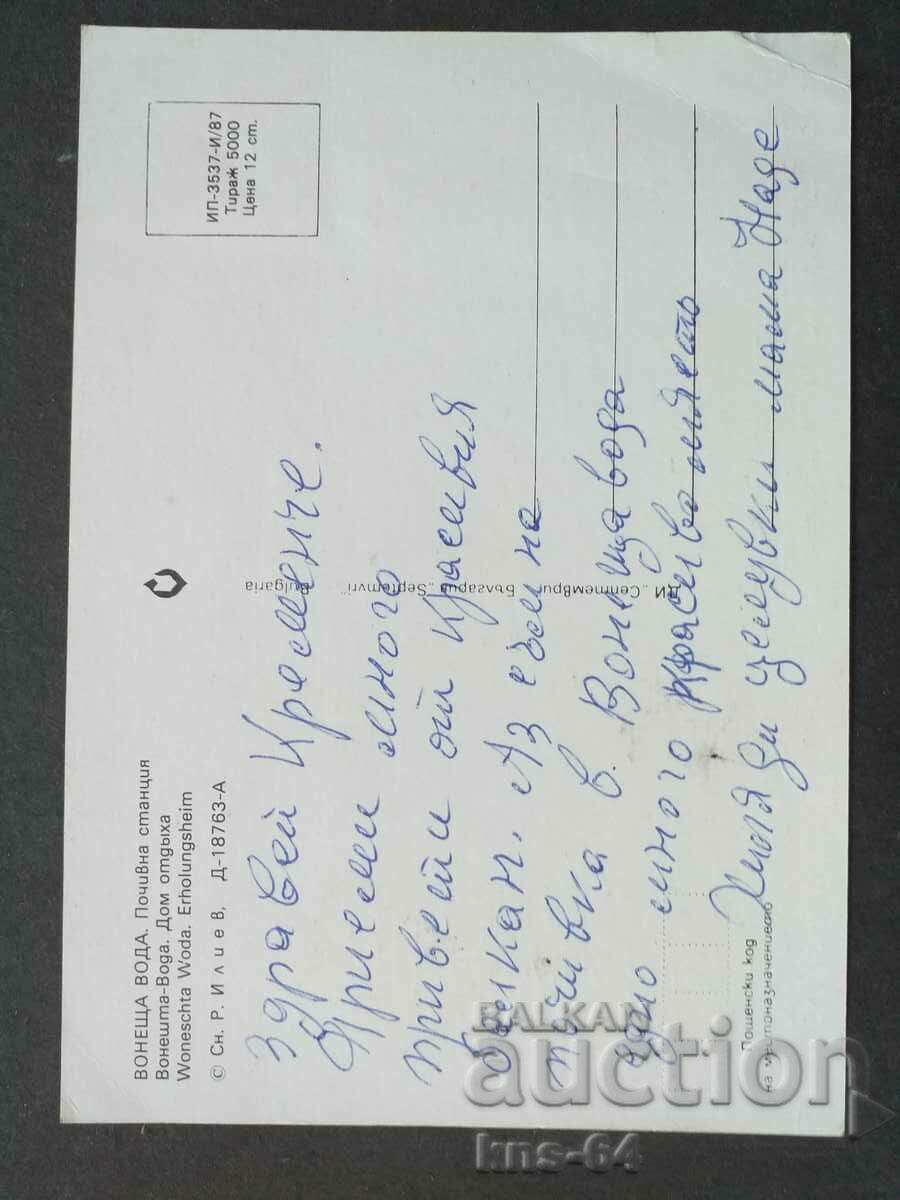 ВОНЕЩА ВОДА. Почивна станция
Вонешта-Вода. Дом отдыха
Woneschta Woda. Erholungsheim
© Сн. Р. Илиев, Д-18763-А
ИП-3537-И/87
Тираж 5000
Цена 12 ст.
здравей Кременче.
Приеми много
привети от красивия
балкан. Аз съм на
почивка в. Вонеща вода
едно много красиво място
Хиляди целувки мама Наде
ДИ „Септември“ България „Septemvri“ Bulgaria
Пощенски код
на местоназначението
BALKAN
auction
kns-64